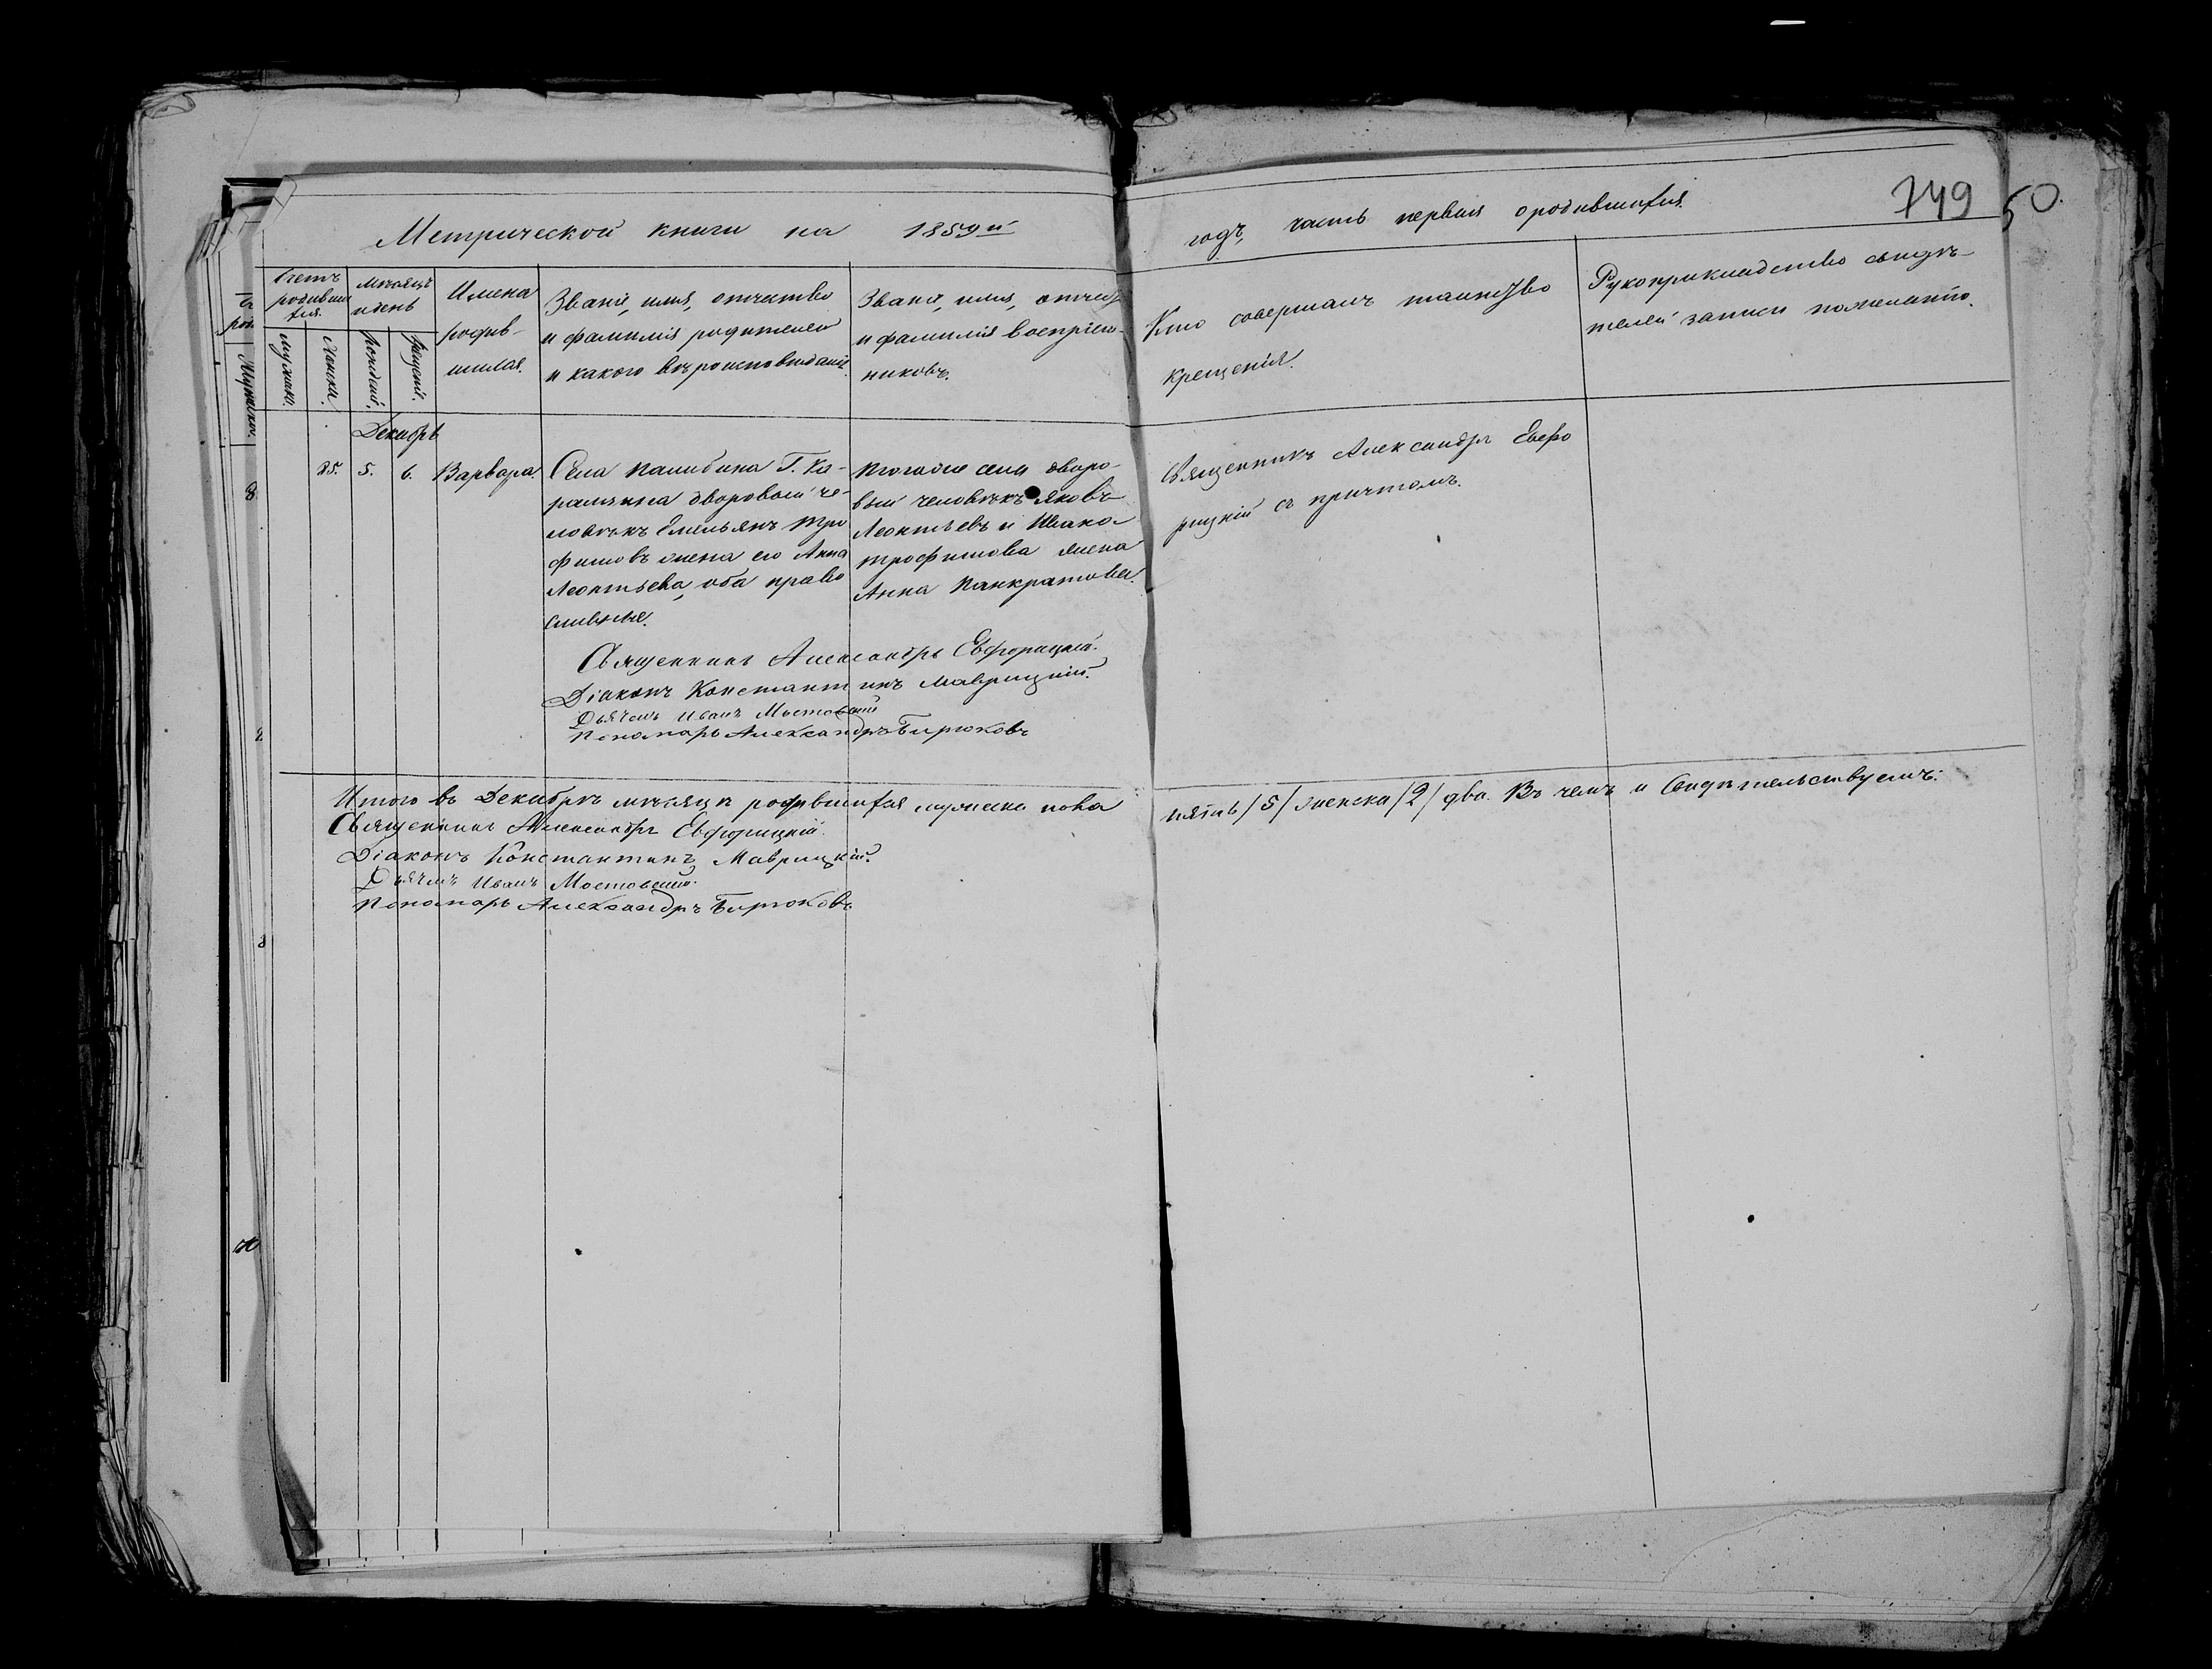 749 50.
Метрической книги на 1859й
годъ, часть первая о родившихся.
Счетъ
родивши
хся.
Мѣсяцъ
и день
Имена
родив-
шихся.
Званіе, имя, отчество
и фамилія родителей
и какого вѣроисповѣданія.
Званіе, имя, отчест
и фамилія воспріем-
никовъ.
Кто совершалъ таинство
крещенія.
Рукоприкладство свидѣ-
телей записи по желанію.
Мужска.
Женска.
рожденія.
крещенія.
Декабрь
25. 5. 6. Варвара.
Села Палибина Г. Ка-
рамзина дворовый че-
ловѣкъ Емельянъ Тро
фимовъ жена его Анна
Леонтьева, оба право
славные.
Тогоже села дворо-
вый человѣкъ Яковъ
Леонтьевъ и Исака
Трофимова жена
Анна Панкратова.
Священникъ Александръ Евфо
рицкій съ причтомъ.
Священникъ Александръ Евфорицкій.
Діаконъ Константинъ Маврицкій.
Дьячекъ Иванъ Мостовскій
Пономарь Александръ Бирюковъ
Итого въ Декабрѣ мѣсяцѣ родившихся мужска пола
пять /5/ женска /2/ два. Въ чемъ и Свидѣтельствуемъ:
Священникъ Александръ Евфорицкій.
Діаконъ Константинъ Маврицкій.
Дьячекъ Иванъ Мостовскій.
Пономарь Александръ Бирюковъ.